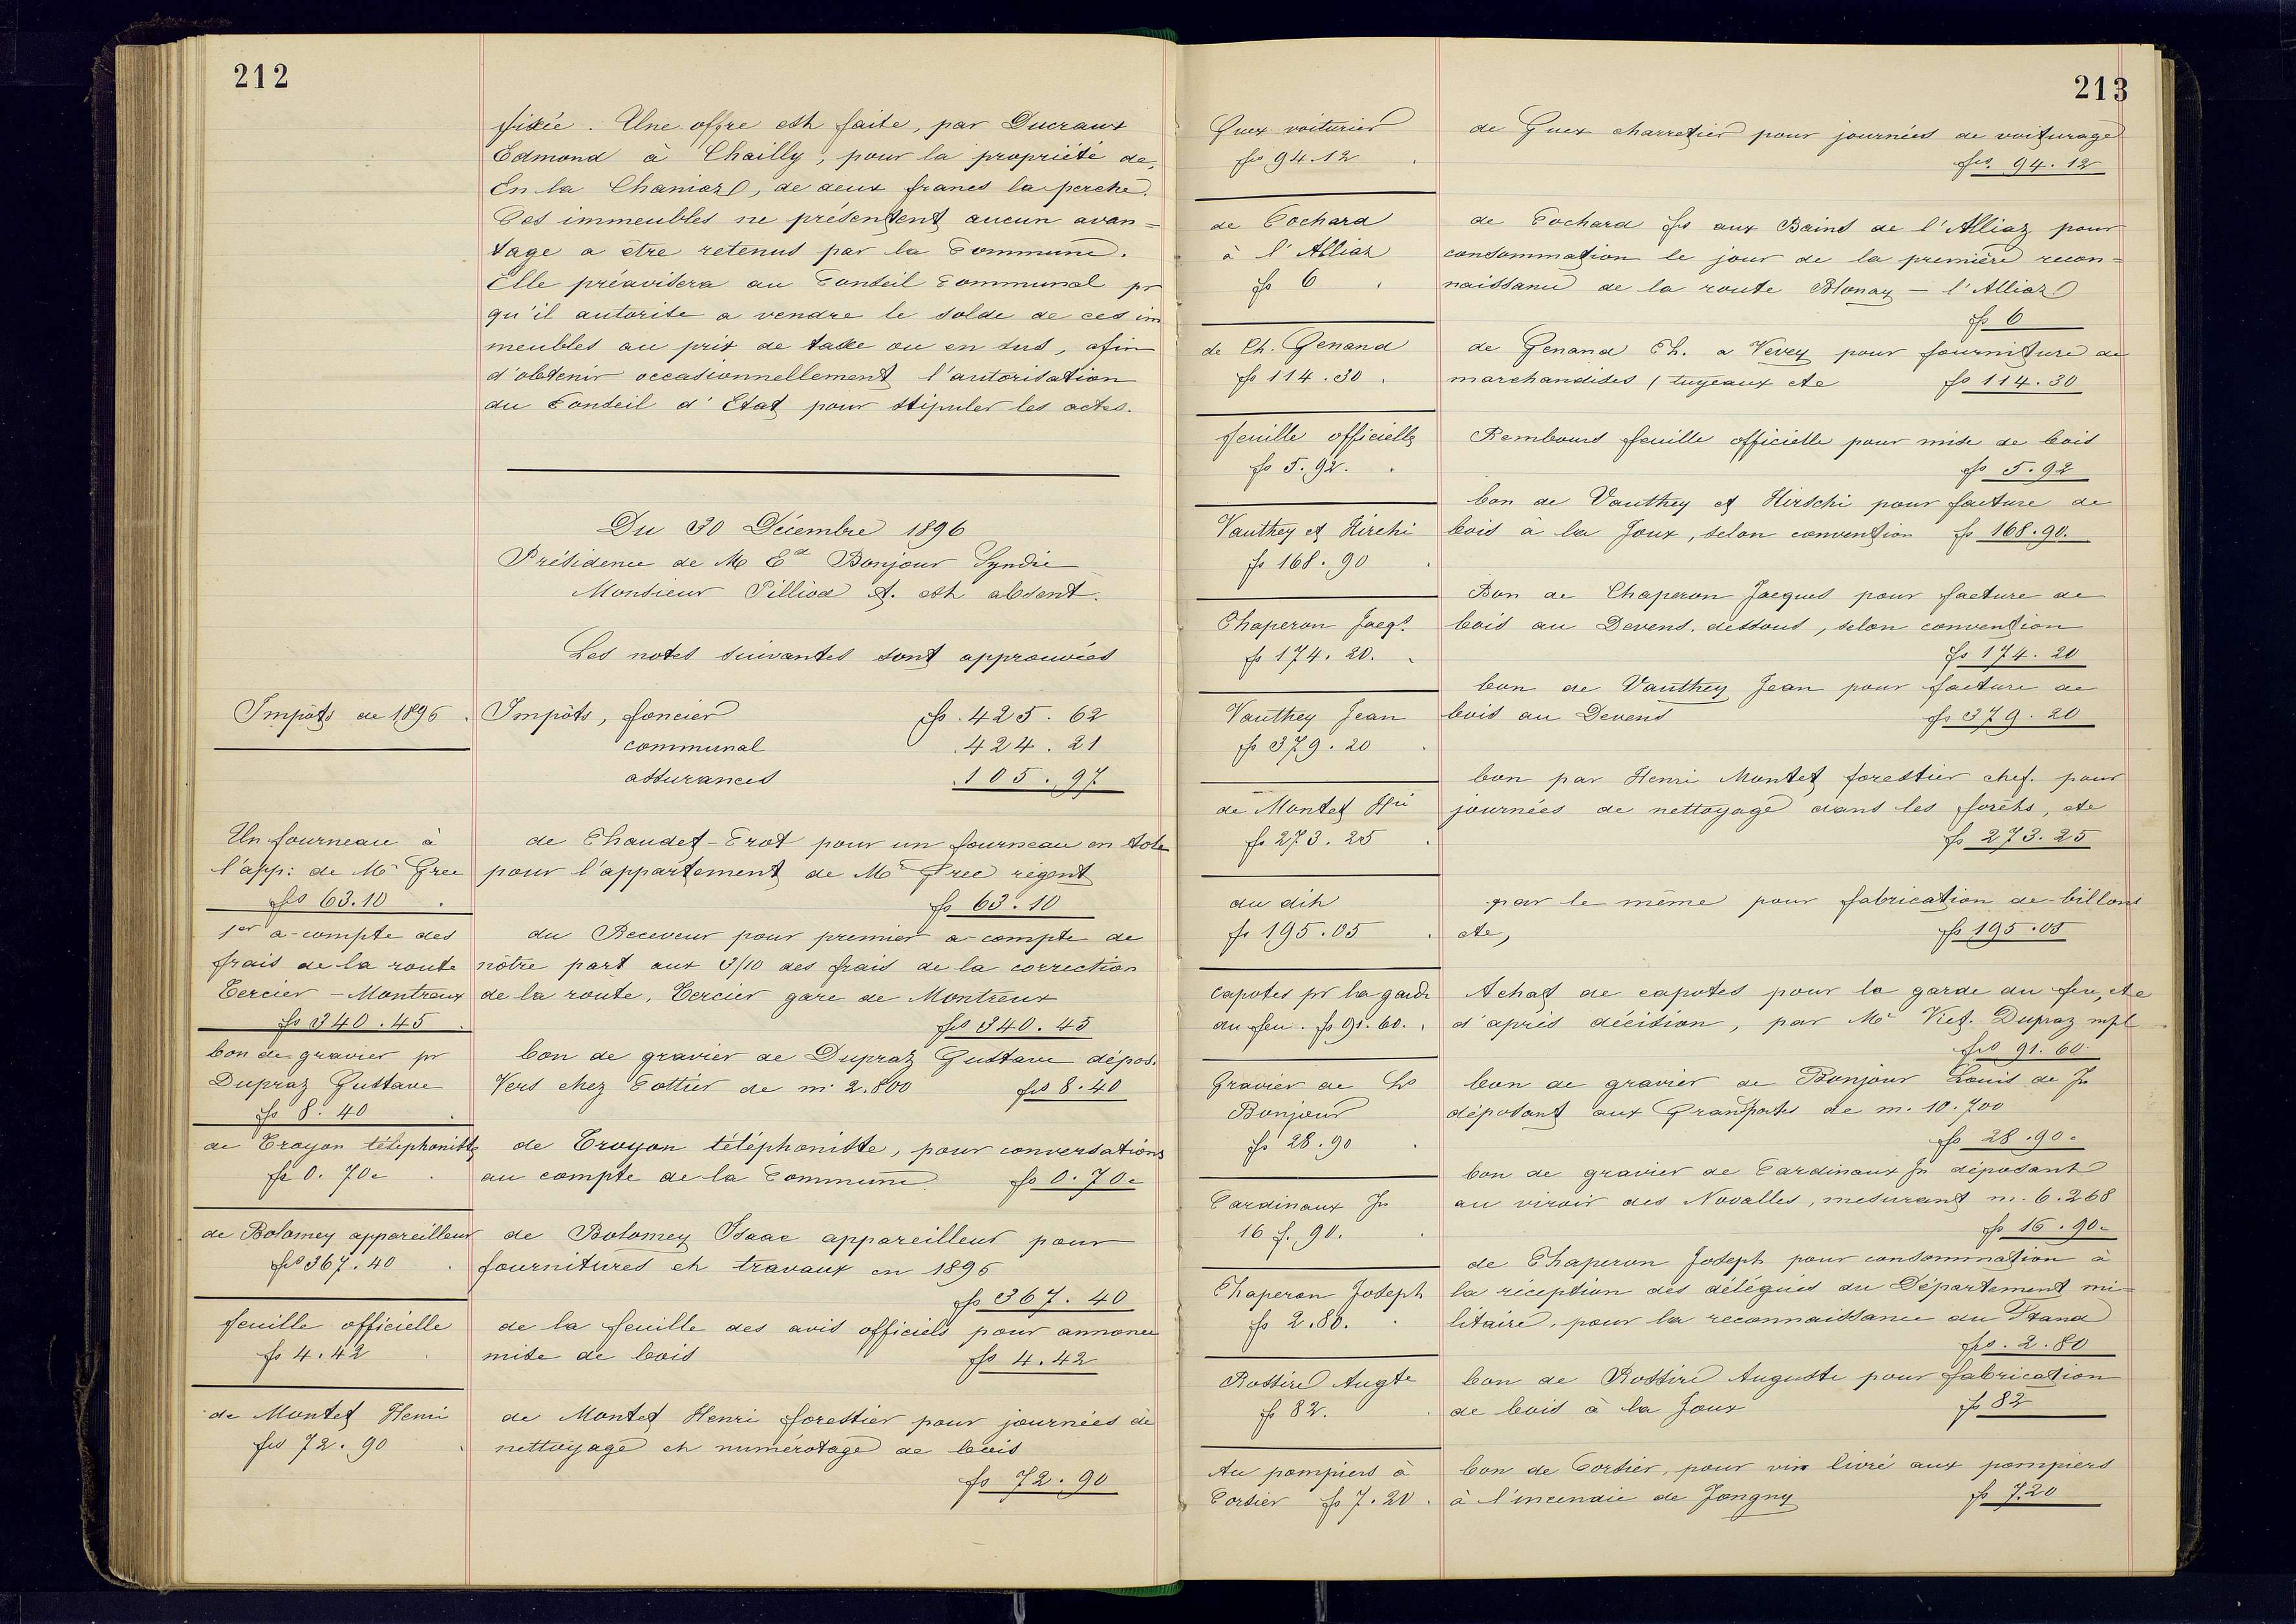 212
fixée. Une offre est faite, par Ducraux
Edmond à Chailly, pour la propriété de,
En la Chaniaz, de deux francs la perche.
Ces immeubles ne présentent aucun avan=
tage a être retenus par la Commune.
Elle préavisera au Conseil Communal pr
qu'il autorise a vendre le solde de ces im
meubles au prix de taxe ou en sus, afin
d'obtenir occasionnellement l'autorisation
du Conseil d'Etat pour stipuler les actes.
Du 30 Décembre 1896
Présidence de M Ed Bonjour Syndic
Monsieur Pilliod A. est absent.
Les notes suivantes sont approuvées
Impôts de 1896.
Impôts, foncier fs. 425. 62
communal . 424. 21
assurances . 105. 97
Un fourneau à
l'app: de Mr Grec
fs 63.10
de Chaudet-Crot pour un fourneau en tole
pour l'appartement de Mr Grec régent
fs 63.10
1er a-compte des
frais de la route
Tercier - Montreux
fs 340.45
du Receveur pour premier a-compte de
nôtre part aux 3/10 des frais de la correction
de la route, Tercier gare de Montreux
fs 340.45
bon de gravier pr
Dupraz Gustave
fs 8.40
bon de gravier de Dupraz Gustave dépos.
Vers chez Cottier de m. 2.800 fs 8.40
de Troyon téléphoniste
fs 0.70c
de Troyon téléphoniste, pour conversations
au compte de la Commune fs 0.70c
de Bolomey appareilleur
fs 367.40
de Bolomey Isaac appareilleur pour
fournitures et travaux en 1896
fs 367.40
feuille officielle
fs 4.42
de la feuille des avis officiels pour annonce
mise de bois fs 4.42
de Montet Henri
fs 72.90
de Montet Henri forestier pour journées de
nettoyage et numérotage de bois
fs 72.90
213
Guex voiturier
fs 94.12
de Guex charretier pour journées de voiturage
fs. 94.12
de Cochard
à l'Alliaz
fs 6
de Cochard fs aux Bains de l'Alliaz pour
consommation le jour de la première recon=
naissance de la route Blonay - l'Alliaz
fs 6
de Ch. Genand
fs 114.30
de Genand Ch. a Vevey pour fourniture de
marchandises, tuyeaux etc fs 114.30
feuille officielle
fs 5.92.
Rembours feuille officielle pour mise de bois
fs 5.92
Vauthey et Hirchi
fs 168.90
bon de Vauthey et Hirschi pour facture de
bois à la Joux, selon convention fs 168.90.
Chaperon Jacqs.
fs 174.20.
Bon de Chaperon Jacques pour facture de
bois au Devens. dessous, selon convention
fs 174.20
Vauthey Jean
fs 379.20
bon de Vauthey Jean pour facture de
bois au Devens fs 379.20
de Montet Hri
fs 273.25
bon par Henri Montet forestier chef. pour
journées de nettoyage dans les forêts, etc
fs 273.25
au dit
fs 195.05
par le même pour fabrication de billons
etc, fs 195.05
Capotes pr la garde
du feu. fs 91.60.
Achat de capotes pour la garde du feu, etc
d'après décision, par Mr Vict. Dupraz mpl
fs 91.60
Gravier de Ls
Bonjour
fs 28.90
bon de gravier de Bonjour Louis de Js
déposant aux Gransportes de m. 10.700
fs 28.90.
Cardinaux Js
16 f. 90.
bon de gravier de Cardinaux Js déposant
au viroir des Novalles, mesurant m. 6.268
fs 16.90c
Chaperon Joseph
fs 2.80.
de Chaperon Joseph pour consommation à
la réception des délégués du Département mi=
litaire, pour la reconnaissance du Stand
fs. 2.80
Rossire Augte
fs 82.
bon de Rossire Auguste pour fabrication
de bois à la Joux fs 82
Au pompiers à
Corsier fs 7.20.
bon de Corsier, pour vin livré aux pompiers
à l'incendie de Jongny fs 7.20